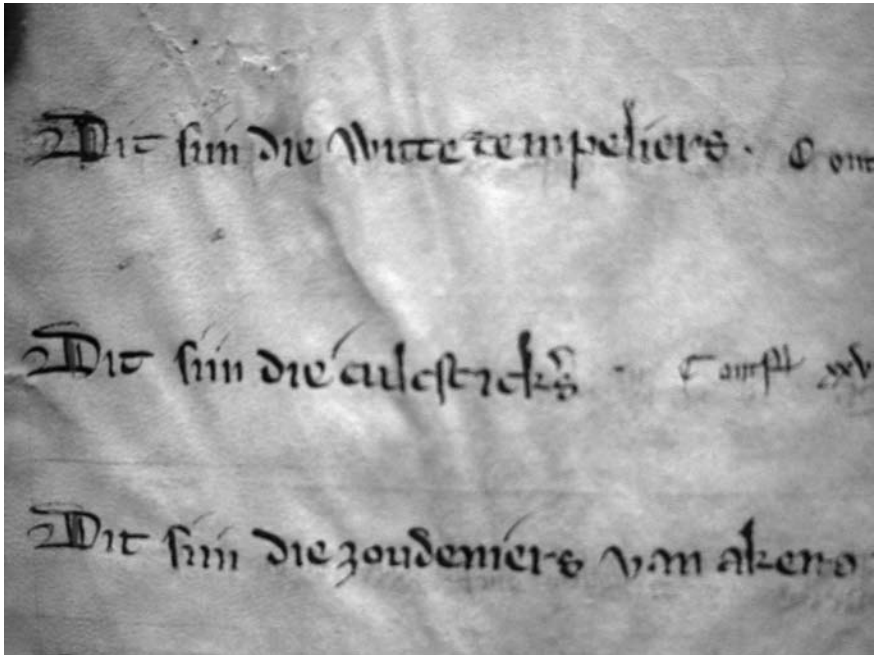 Dit siin die Witte tempeliers .
Dit siin die culestekers .
Dit siin die zoudeniers van akers